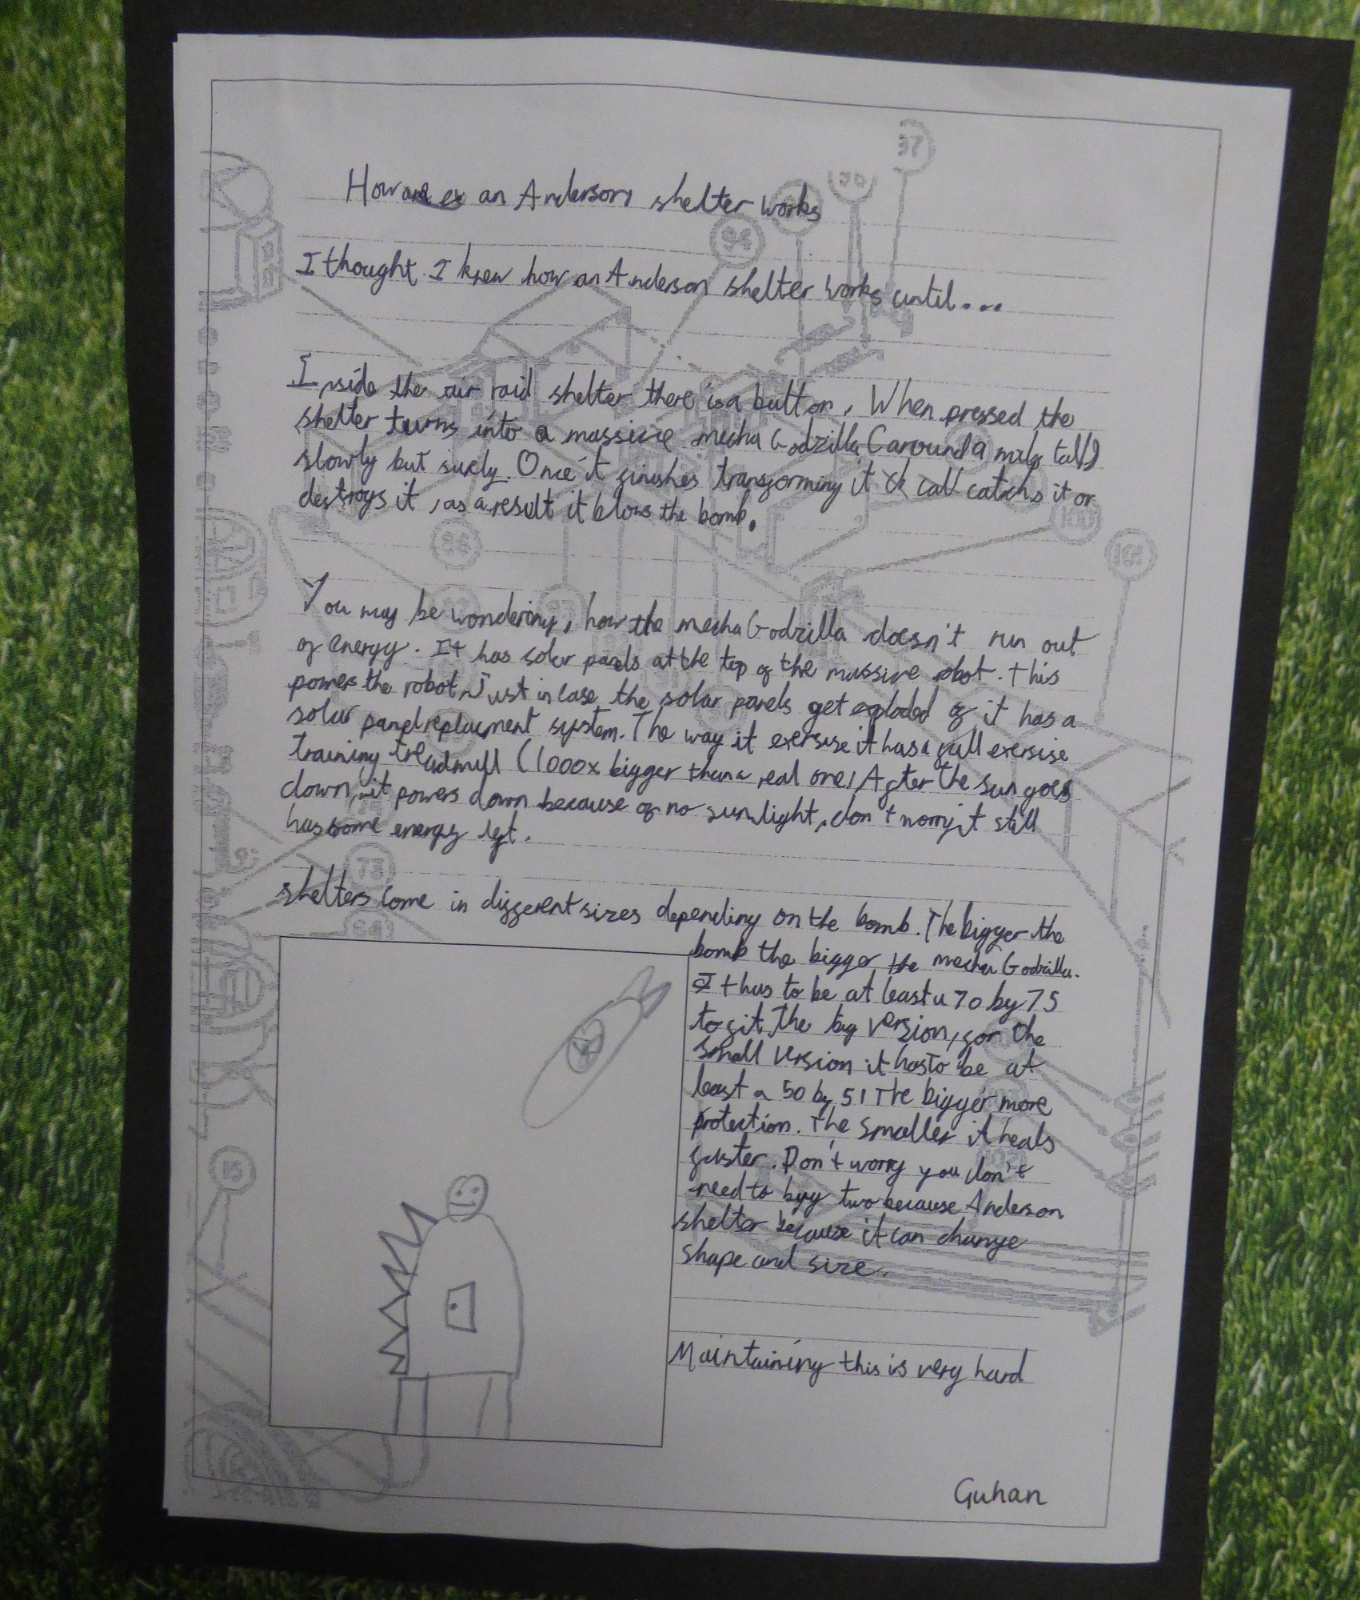 How an Anderson shelter works
I thought I knew how an Anderson shelter works until...
Inside the air raid shelter there is a button, When pressed the
shelter turns into a massive mecha Godzilla (around a mile tall)
slowly but surely. Once it finishes transforming it call catchs it or
destroys it, as a result it blows the bomb.
You may be wondering, how the mecha Godzilla doesn't run out
of energy. It has solar panels at the top of the massive robot. This
powers the robot. Just in case the solar panels get exploded it has a
solar panel replacment system. The way it exersise it has a full exersise
training treadmill (1000x bigger than a real one) After the sun goes
down, it powers down because of no sunlight, don't worry it still
has some energy left.
shelters come in different sizes depending on the bomb. The bigger the
bomb the bigger the mecha Godzilla.
It has to be at least a 70 by 75
to fit the big version, for the
small version it has to be at
least a 50 by 51 The bigger more
protection. The smaller it heals
faster. Don't worry you don't
need to buy two because Anderson
shelter because it can change
shape and size.
Maintaining this is very hard
Guhan
37
94
96
100
101
73
15